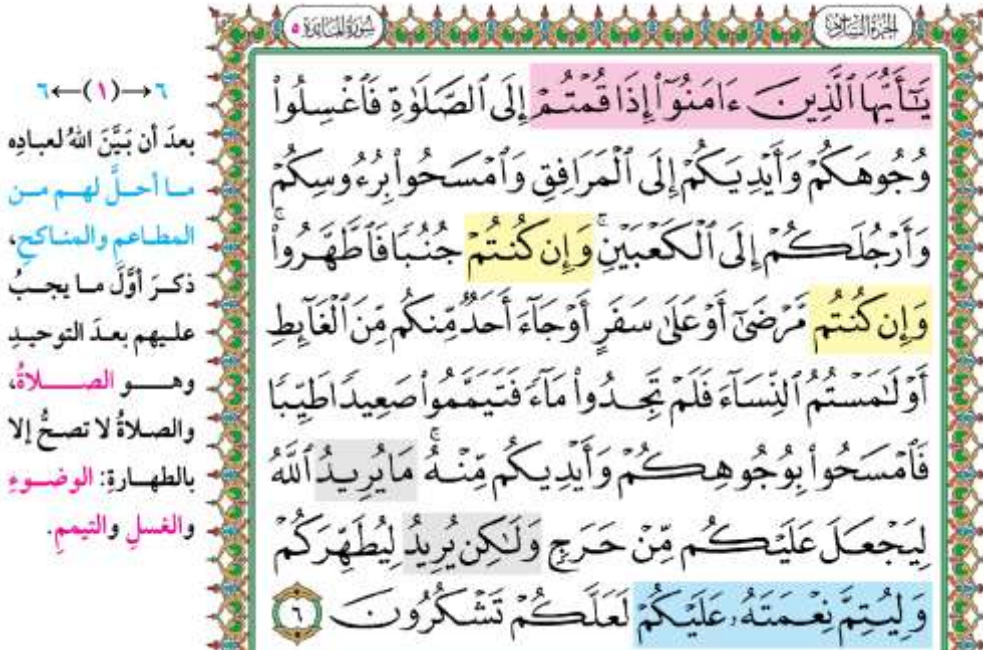 الجزء السادس
سورة المائدة ٥
يَـٰٓأَيُّهَا ٱلَّذِينَ ءَامَنُوٓا۟ إِذَا قُمْتُمْ إِلَى ٱلصَّلَوٰةِ فَٱغْسِلُوا۟
وُجُوهَكُمْ وَأَيْدِيَكُمْ إِلَى ٱلْمَرَافِقِ وَٱمْسَحُوا۟ بِرُءُوسِكُمْ
وَأَرْجُلَكُمْ إِلَى ٱلْكَعْبَيْنِ ۚ وَإِن كُنتُمْ جُنُبًا فَٱطَّهَّرُوا۟ ۚ
وَإِن كُنتُم مَّرْضَىٰٓ أَوْ عَلَىٰ سَفَرٍ أَوْ جَآءَ أَحَدٌ مِّنكُم مِّنَ ٱلْغَآئِطِ
أَوْ لَـٰمَسْتُمُ ٱلنِّسَآءَ فَلَمْ تَجِدُوا۟ مَآءً فَتَيَمَّمُوا۟ صَعِيدًا طَيِّبًا
فَٱمْسَحُوا۟ بِوُجُوهِكُمْ وَأَيْدِيكُم مِّنْهُ ۚ مَا يُرِيدُ ٱللَّهُ
لِيَجْعَلَ عَلَيْكُم مِّنْ حَرَجٍ وَلَـٰكِن يُرِيدُ لِيُطَهِّرَكُمْ
وَلِيُتِمَّ نِعْمَتَهُۥ عَلَيْكُمْ لَعَلَّكُمْ تَشْكُرُونَ ٦
٦←(١)→٦
بعدَ أن بَيَّنَ اللهُ لعبادِه
ما أحلَّ لهم من
المطاعمِ والمناكحِ،
ذكرَ أوَّلَ ما يجبُ
عليهم بعدَ التوحيدِ
وهو الصلاةُ،
والصلاةُ لا تصحُّ إلا
بالطهارةِ: الوضوءِ
والغسلِ والتيممِ.